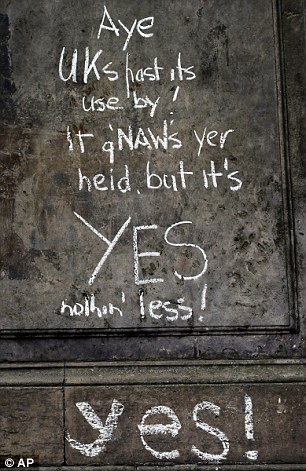 Aye
UKs past its
use by!
It g'NAW's yer
heid, but it's
YES
nothin' less!
yes!
© AP